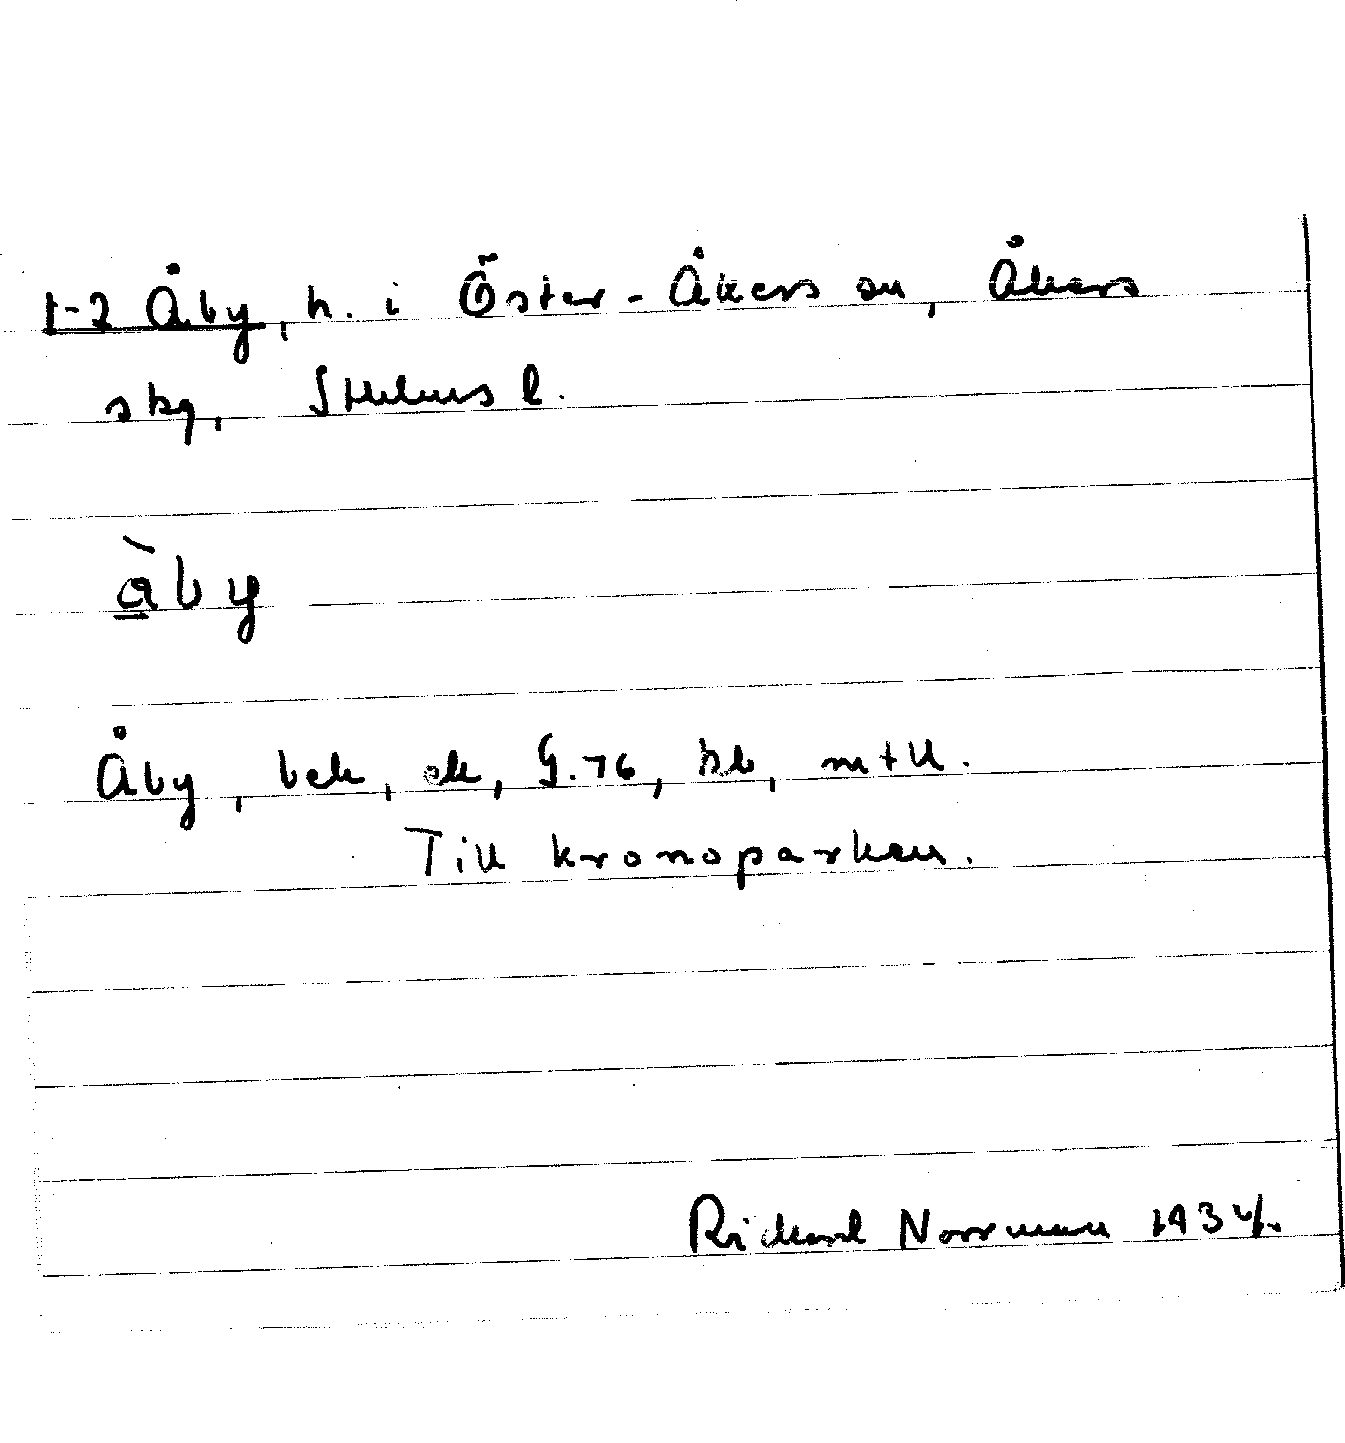 1-2 Åby, h. i Öster-Åkers sn, Åkers
skg, Sthlms l.
àby
Åby, bek, ek, G.76, kb, mtll.
Till kronoparken.
Rickard Norrman 1934.